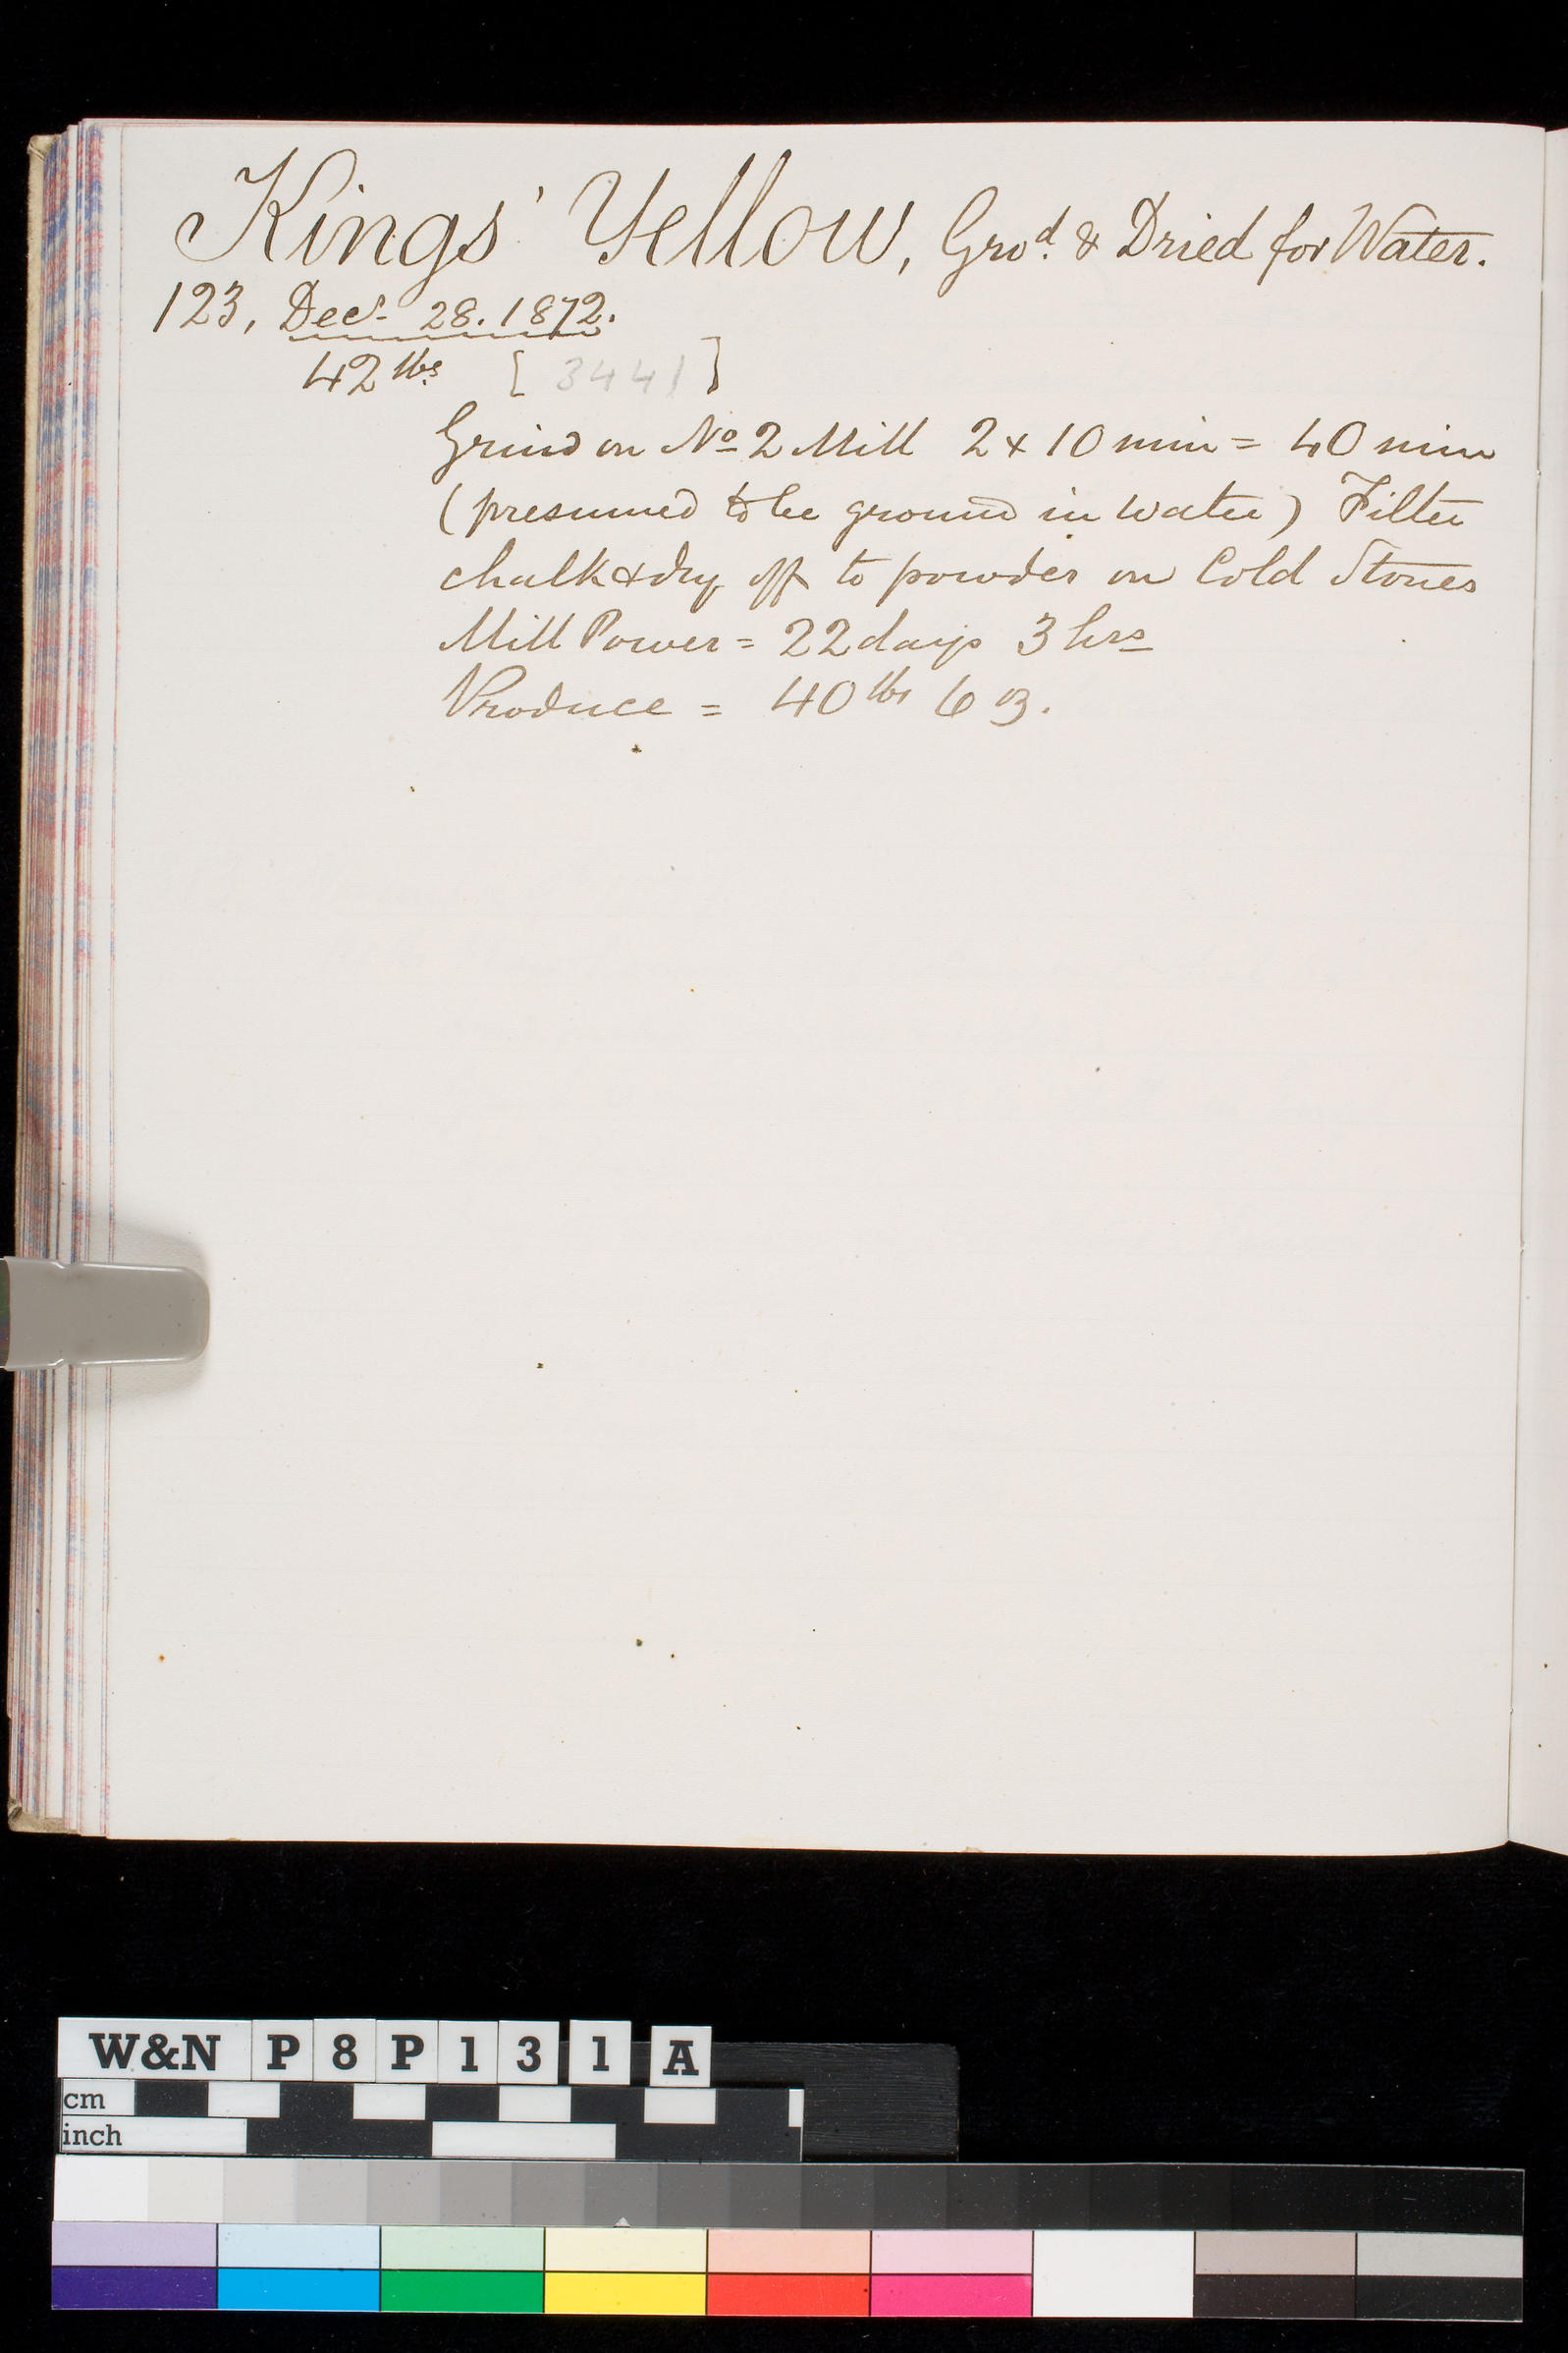 Kings' Yellow, Gro.d & Dried for Water.
123, Decr 28. 1872.
42 lbs [3441]
Grind on No 2 Mill 2 x 10 min = 40 min
(presumed to be ground in water) Filter
chalk & dry off to powder on Cold Stones
Mill Power = 22 days 3 hrs
Produce = 40 lbs 6 oz.
W&N P8P131A
cm
inch